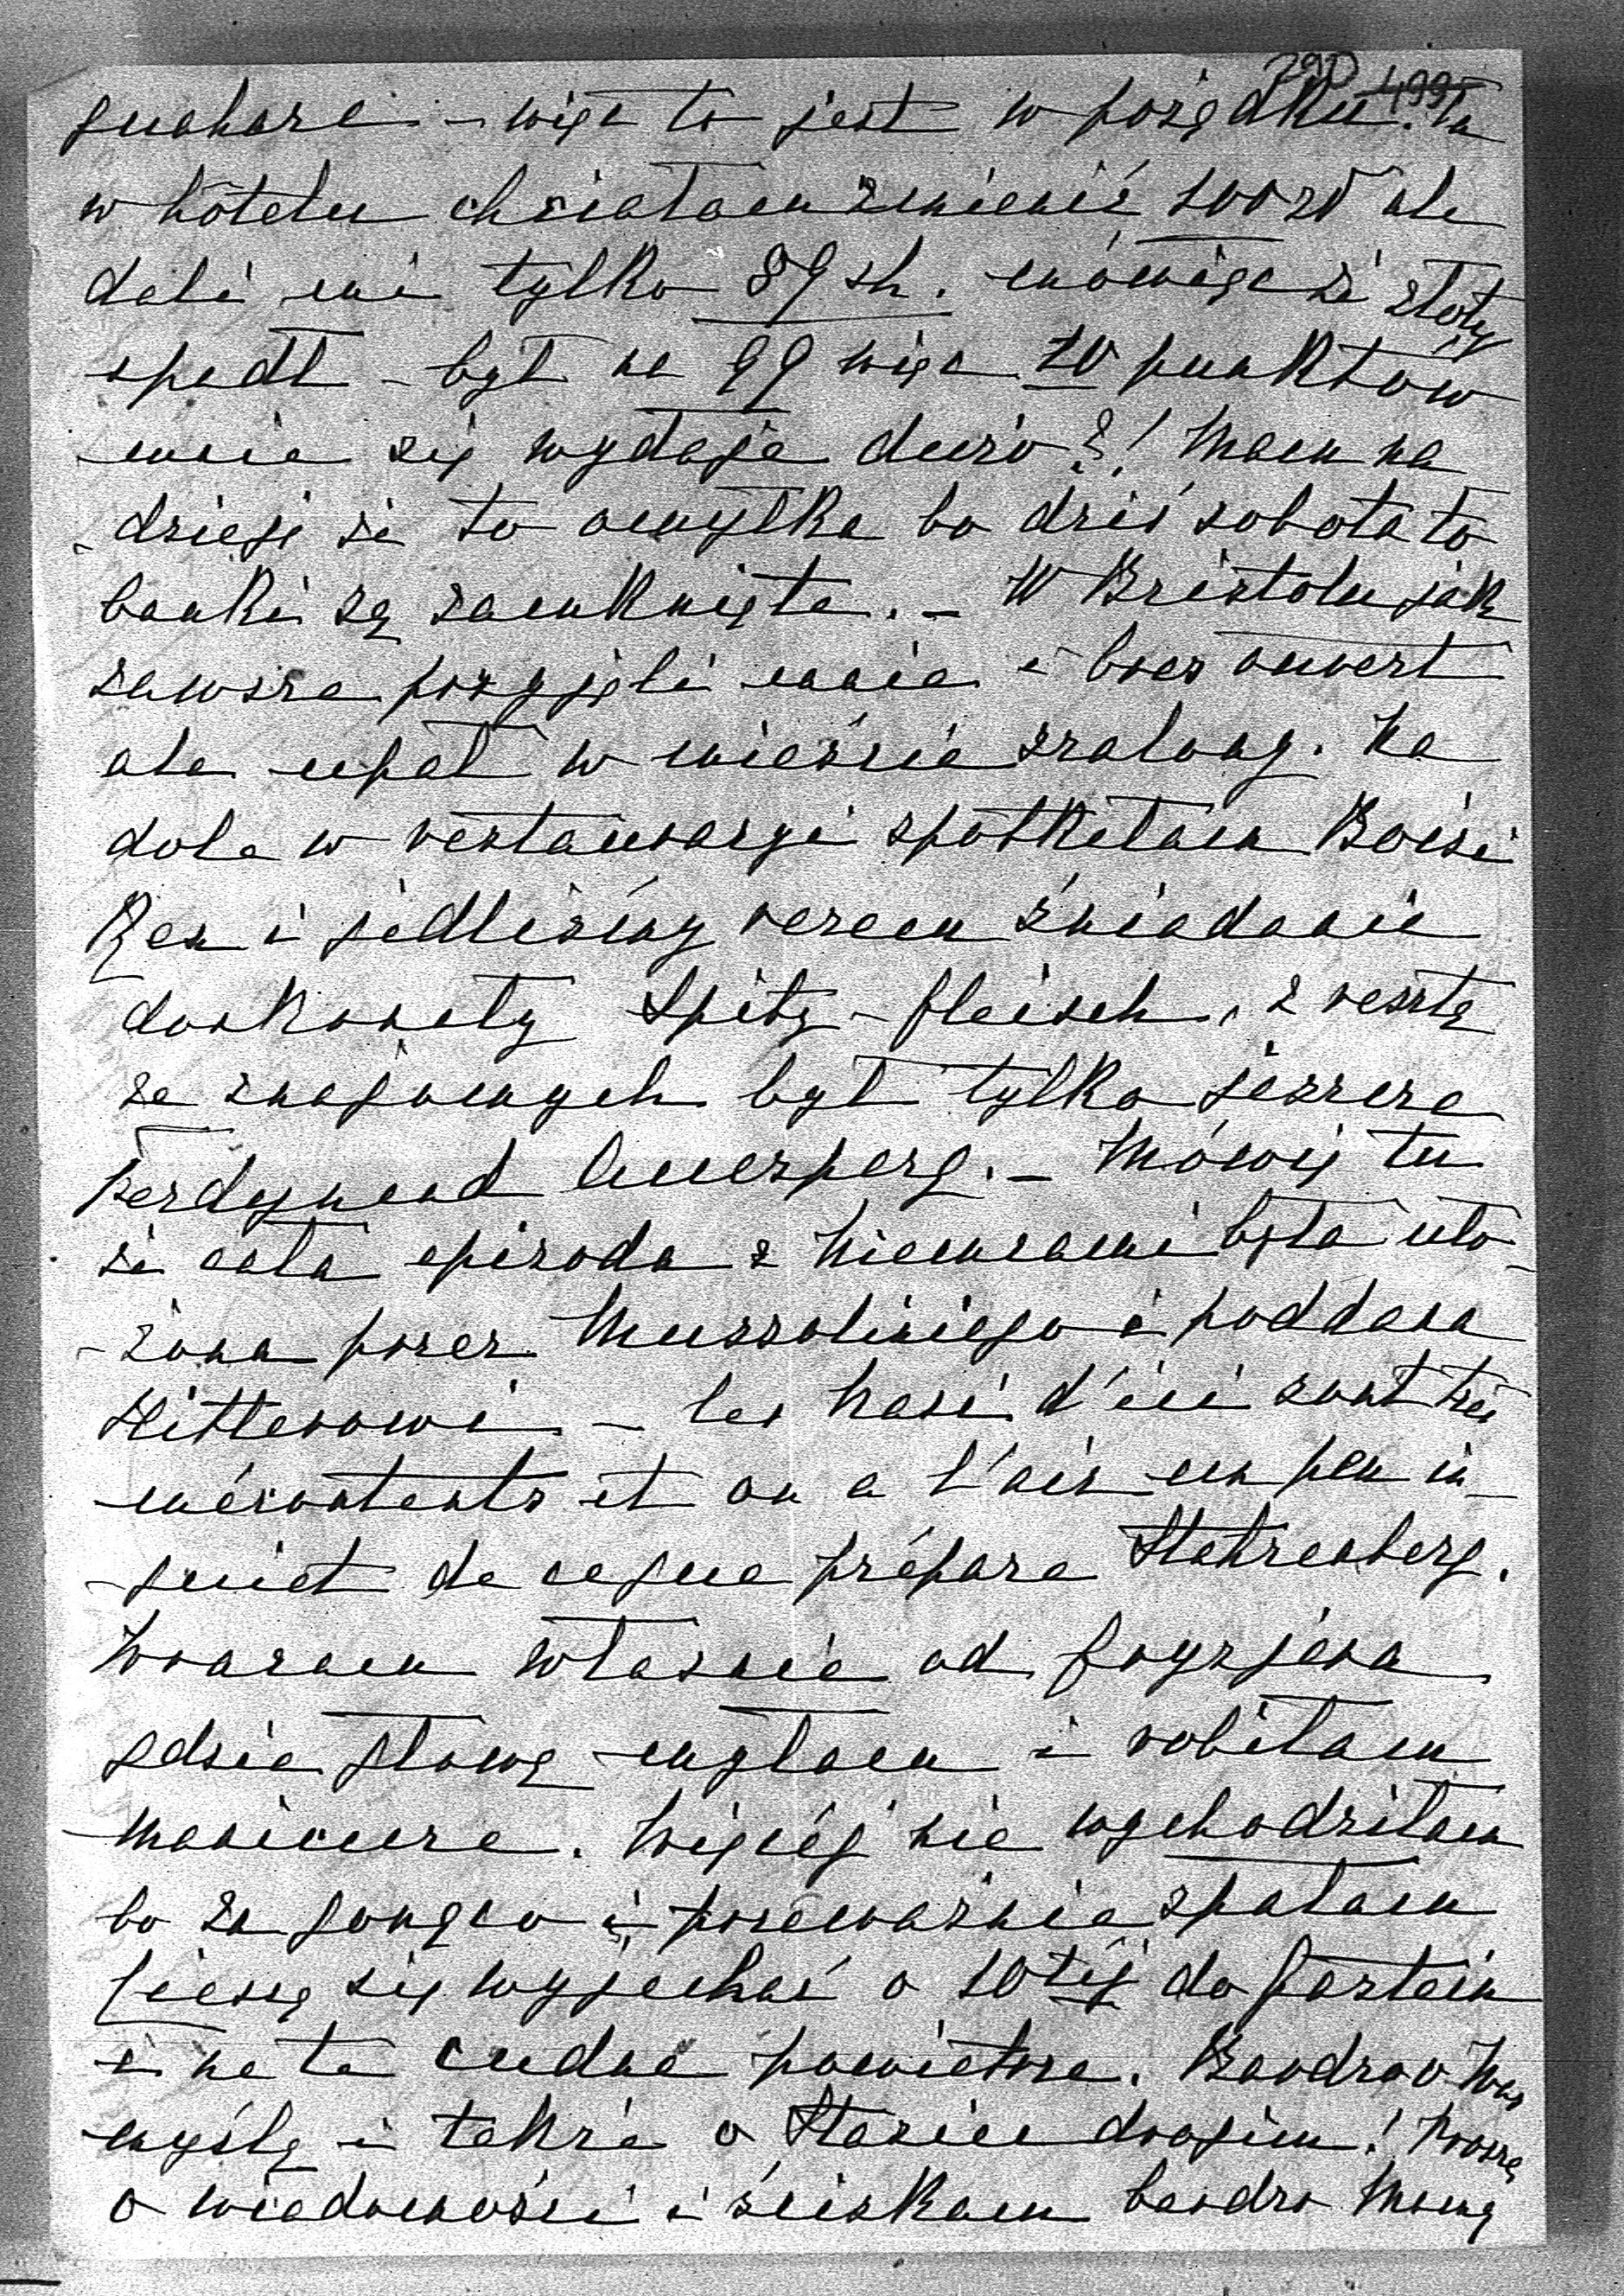 290 499
kucharz – więc to jest w porządku. Tu
w hôtelu chciałam zmienić 100 zł ale
dali mi tylko 89 sh. mówiąc że złoty
spadł – był na 99 więc 10 punktów
mnie się wydaje dużo?! Mam na
dzieję że to omyłka bo dziś sobota to
banki są zamknięte. – W Bristolu jak
zawsze przyjęli mnie à bras ouvert
ale upał w mieście szalony. Na
dole w restauracyi spotkałam
i jedliśmy razem śniadanie
doskonały Spitz-fleisch, z resztą
ze znajomych był tylko jeszcze
Ferdynand Auersperg. – Mówią tu
że cała epizoda z Niemcami była uło-
-żona przez Mussoliniego i poddana
Hitlerowi – les Nasi d'ici sont très
mécontents et on a l'air un peu in-
-quiet de ce que prépare Stahremberg.
Wracam właśnie od fryzjera
gdzie głowę myłam i robiłam
manicure. Więcéj nie wychodziłam
bo za gorąco i przeważnie spałam
Cieszę się wyjechać o 10téj do Gastein
i na te cudne powietrze. Bardzo o Was
myślę i także o Stasiu drogim! Proszę
o wiadomości i ściskam bardzo Mamę